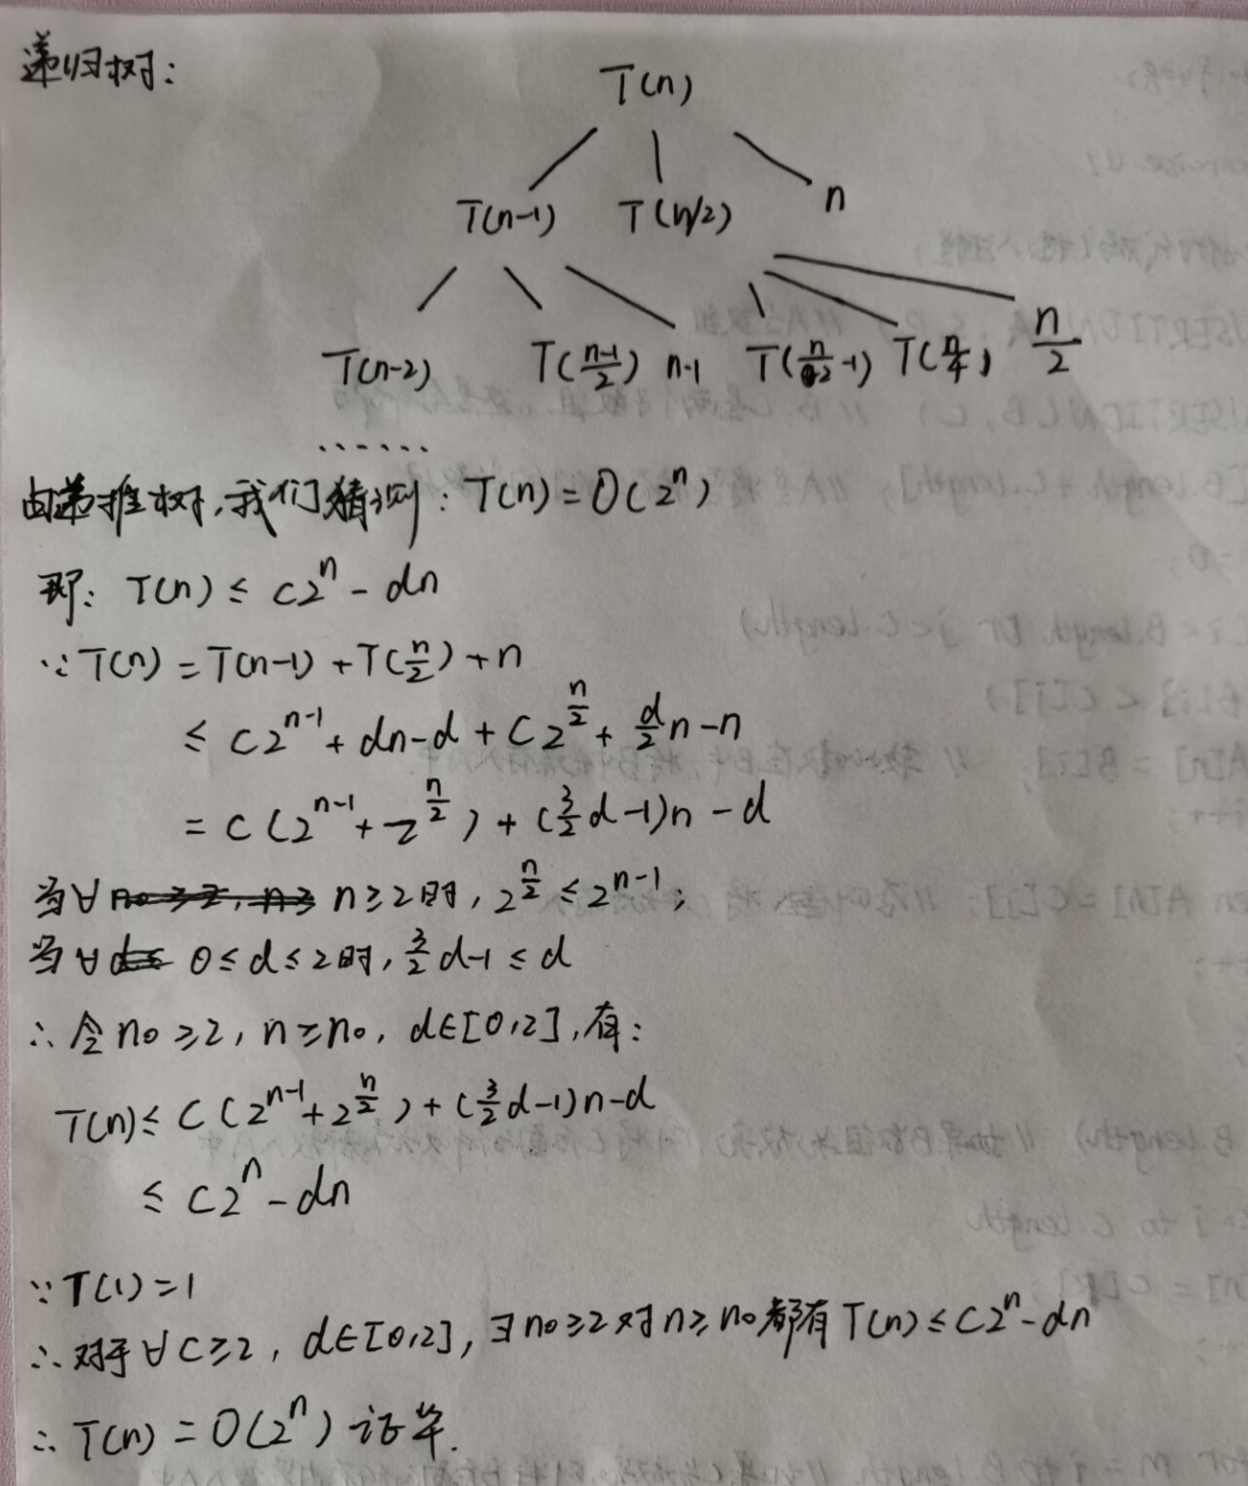 递归树:
T(n)
T(n-1) T(n/2) n
T(n-2) T(\frac{n-1}{2}) n-1 T(\frac{n}{2}-1) T(\frac{n}{4}) \frac{n}{2}
......
由递推树,我们猜测: T(n)=O(2^n)
即: T(n) ≤ c2^n - dn
∵ T(n) = T(n-1) + T(\frac{n}{2}) + n
≤ c2^{n-1} + dn-d + c2^{\frac{n}{2}} + \frac{d}{2}n - n
= c(2^{n-1} + 2^{\frac{n}{2}}) + (\frac{3}{2}d-1)n - d
当∀ n≥2时, 2^{\frac{n}{2}} ≤ 2^{n-1};
当∀ 0≤d≤2时, \frac{3}{2}d-1 ≤ d
∴ 令n_0≥2, n≥n_0, d∈[0,2],有:
T(n) ≤ c(2^{n-1} + 2^{\frac{n}{2}}) + (\frac{3}{2}d-1)n-d
≤ c2^n - dn
∵ T(1)=1
∴ 对于∀c≥2, d∈[0,2], ∃n_0≥2对n≥n_0都有T(n)≤c2^n-dn
∴ T(n) = O(2^n) 证毕.